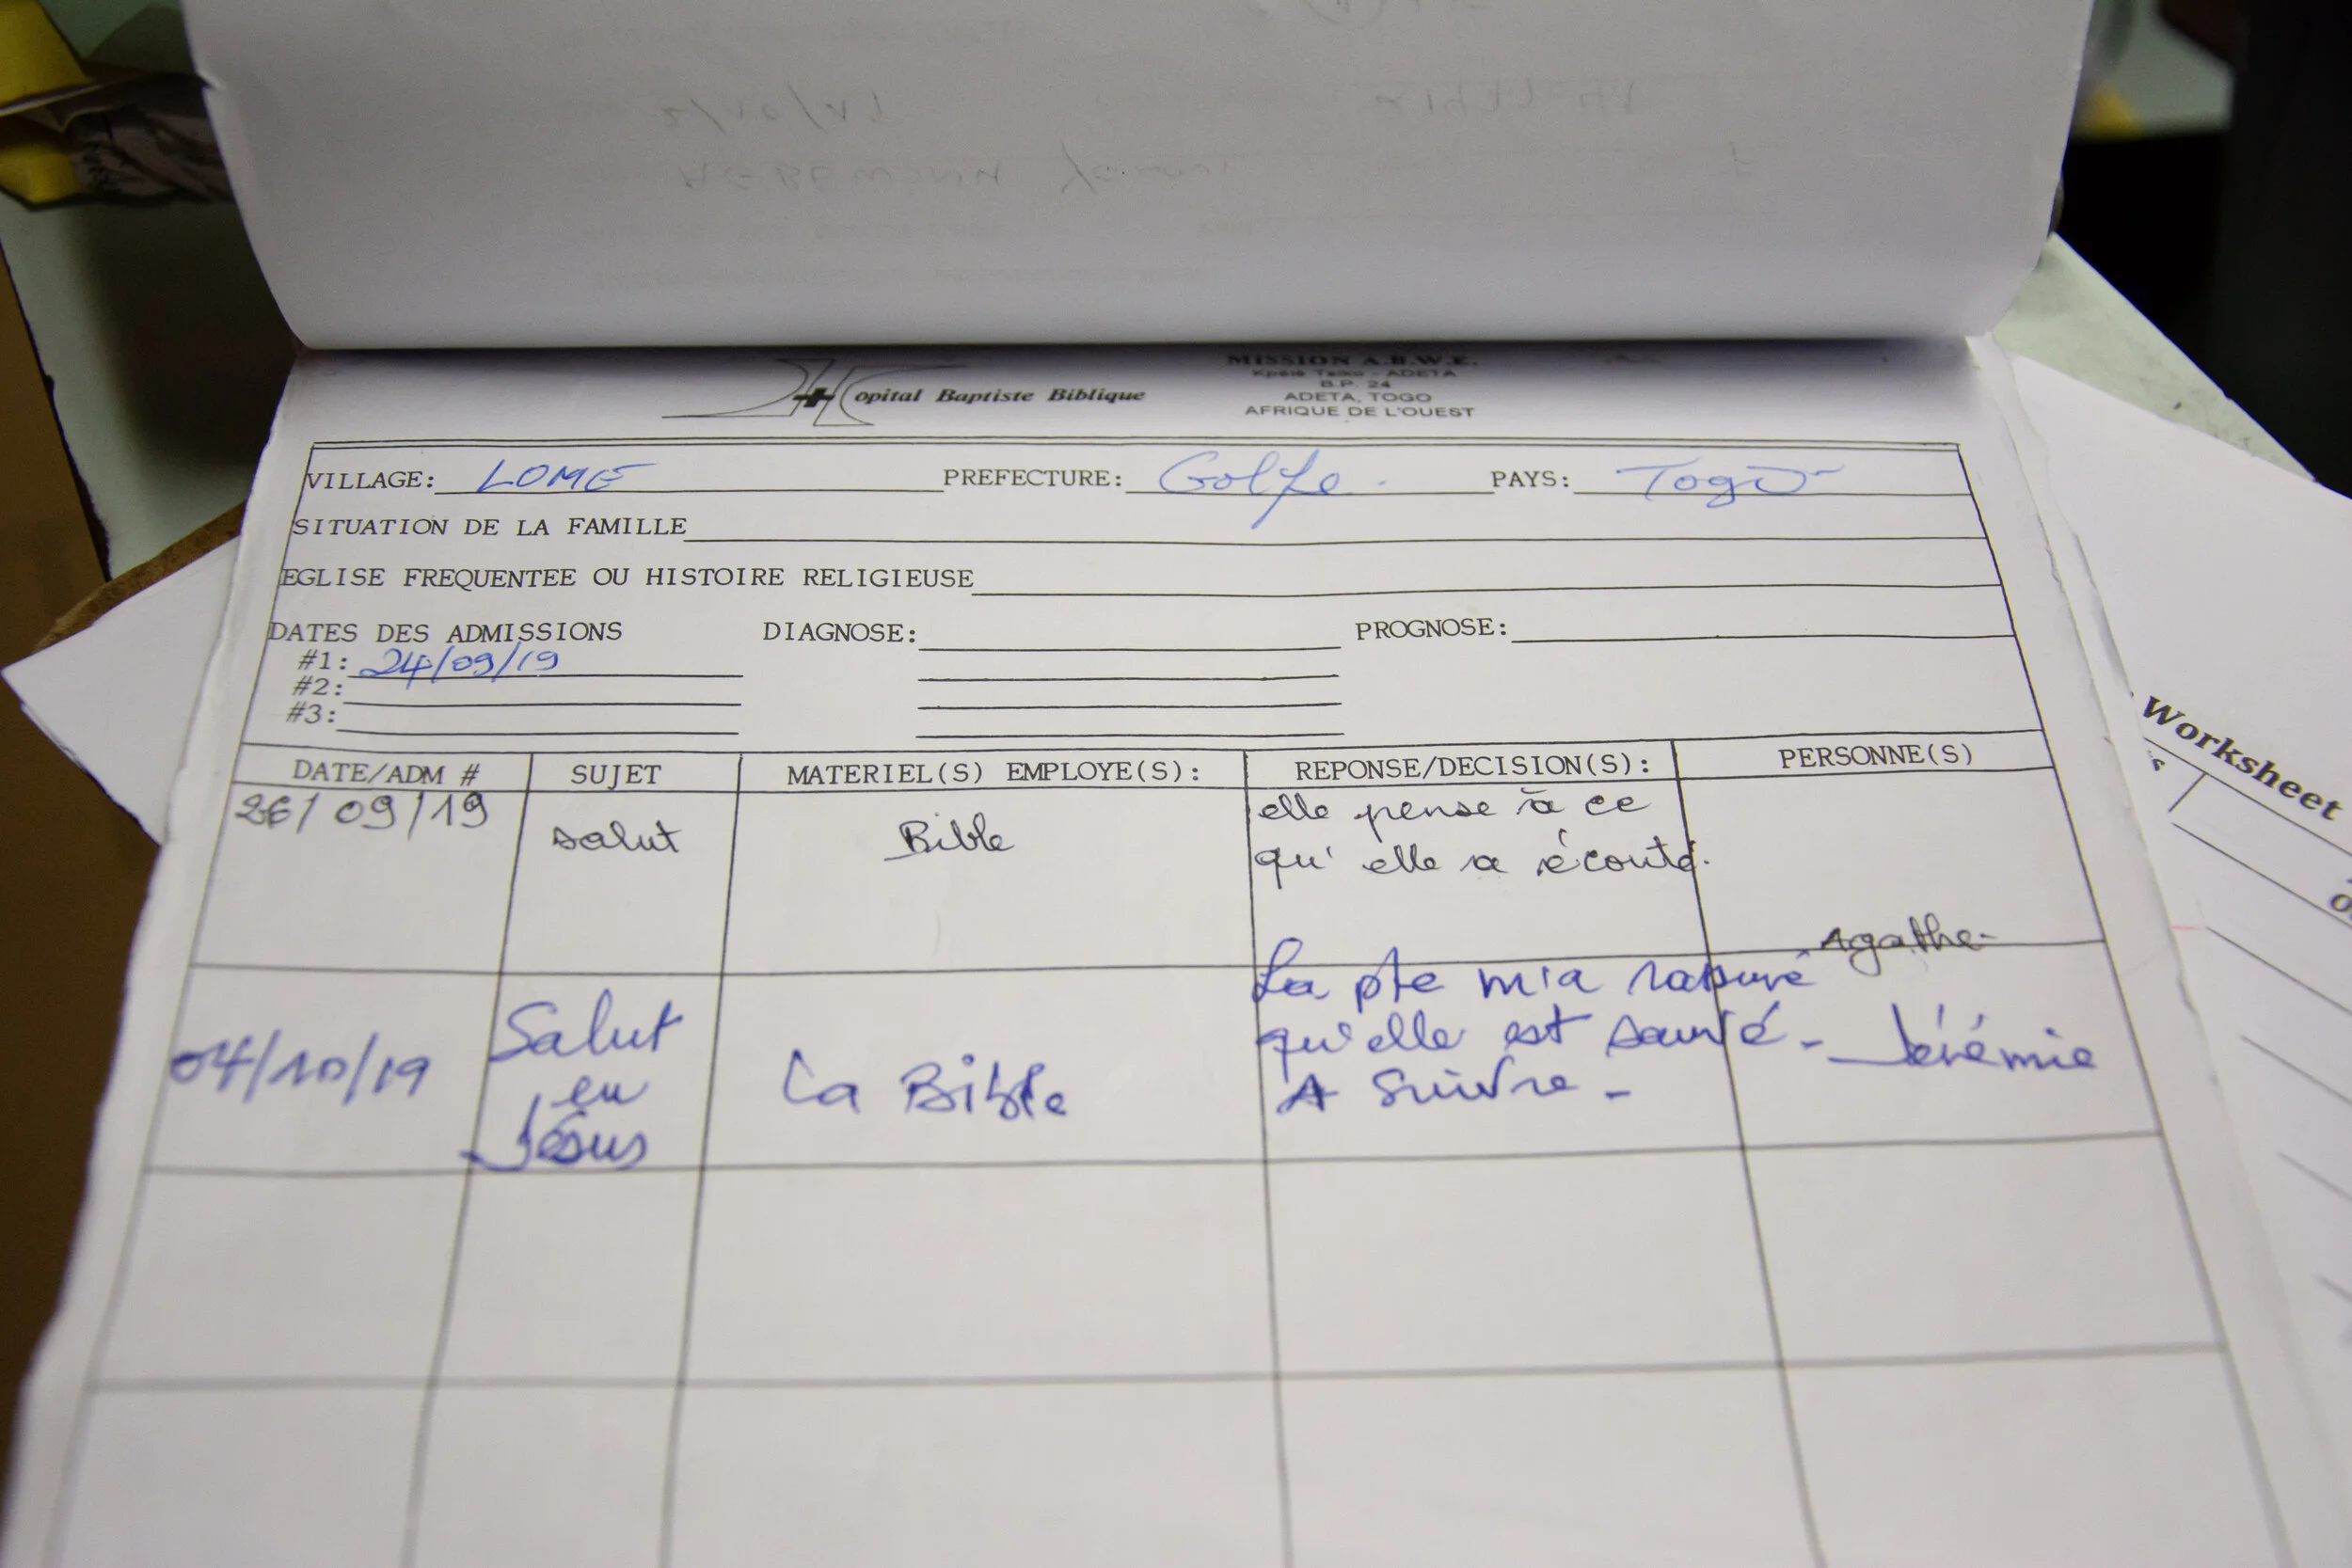 Hopital Baptiste Biblique
MISSION A.B.W.E.
Kpélé Tsiko - ADETA
B.P. 24
ADETA, TOGO
AFRIQUE DE L'OUEST
VILLAGE: LOME PREFECTURE: Golfe. PAYS: Togo
SITUATION DE LA FAMILLE
EGLISE FREQUENTEE OU HISTOIRE RELIGIEUSE
DATES DES ADMISSIONS DIAGNOSE: PROGNOSE:
#1: 24/09/19
#2:
#3:
DATE/ADM # SUJET MATERIEL(S) EMPLOYE(S): REPONSE/DECISION(S): PERSONNE(S)
26/09/19 salut Bible elle pense à ce
qu'elle a écouté.
Agathe-
04/10/19 Salut
en
Jésus
La Bible
La pte m'a rassuré
qu'elle est sauvé-
A suivre-
Jérémie
Worksheet